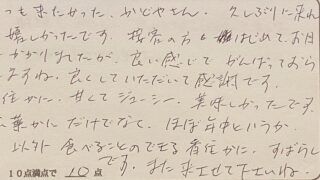 っも来たかった、かどやさん。久しぶりに来れ
嬉しかったです。接客の方も はじめてお目
かかりましたが、良い感じで がんばっておら
ますね。良くしていただいて感謝です。
かに、甘くてジューシー。美味しかったです。
葉がにだけでなく、ほぼ年中というか
以外 食べることのできる 香住がに。すばらし
です。また来させて下さいね。
10点満点で 10 点